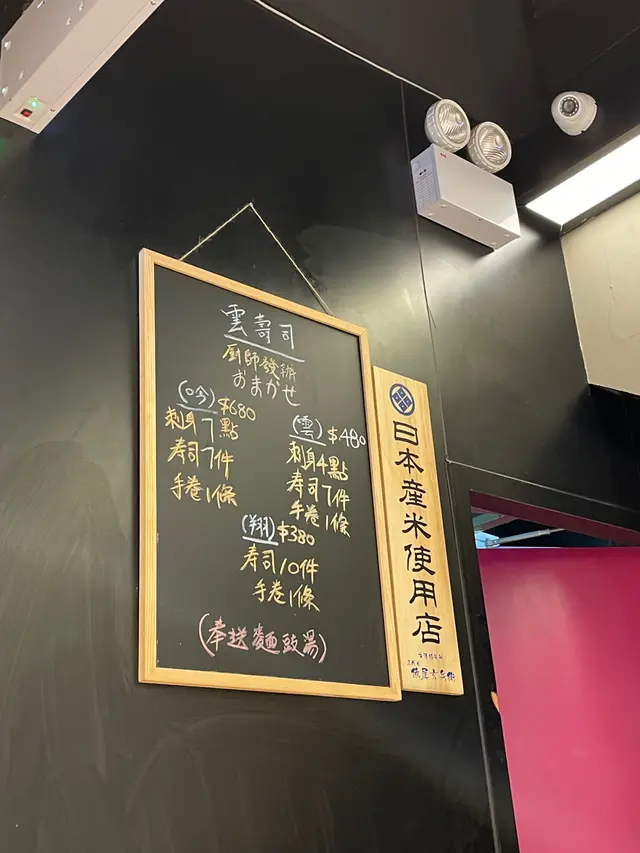 雲壽司
廚師發辦
おまかせ
(吟) $680
刺身7點
寿司7件
手卷1條
(雲) $480
刺身4點
寿司7件
手卷1條
(翔) $380
寿司10件
手卷1條
(奉送麵豉湯)
日本産米使用店